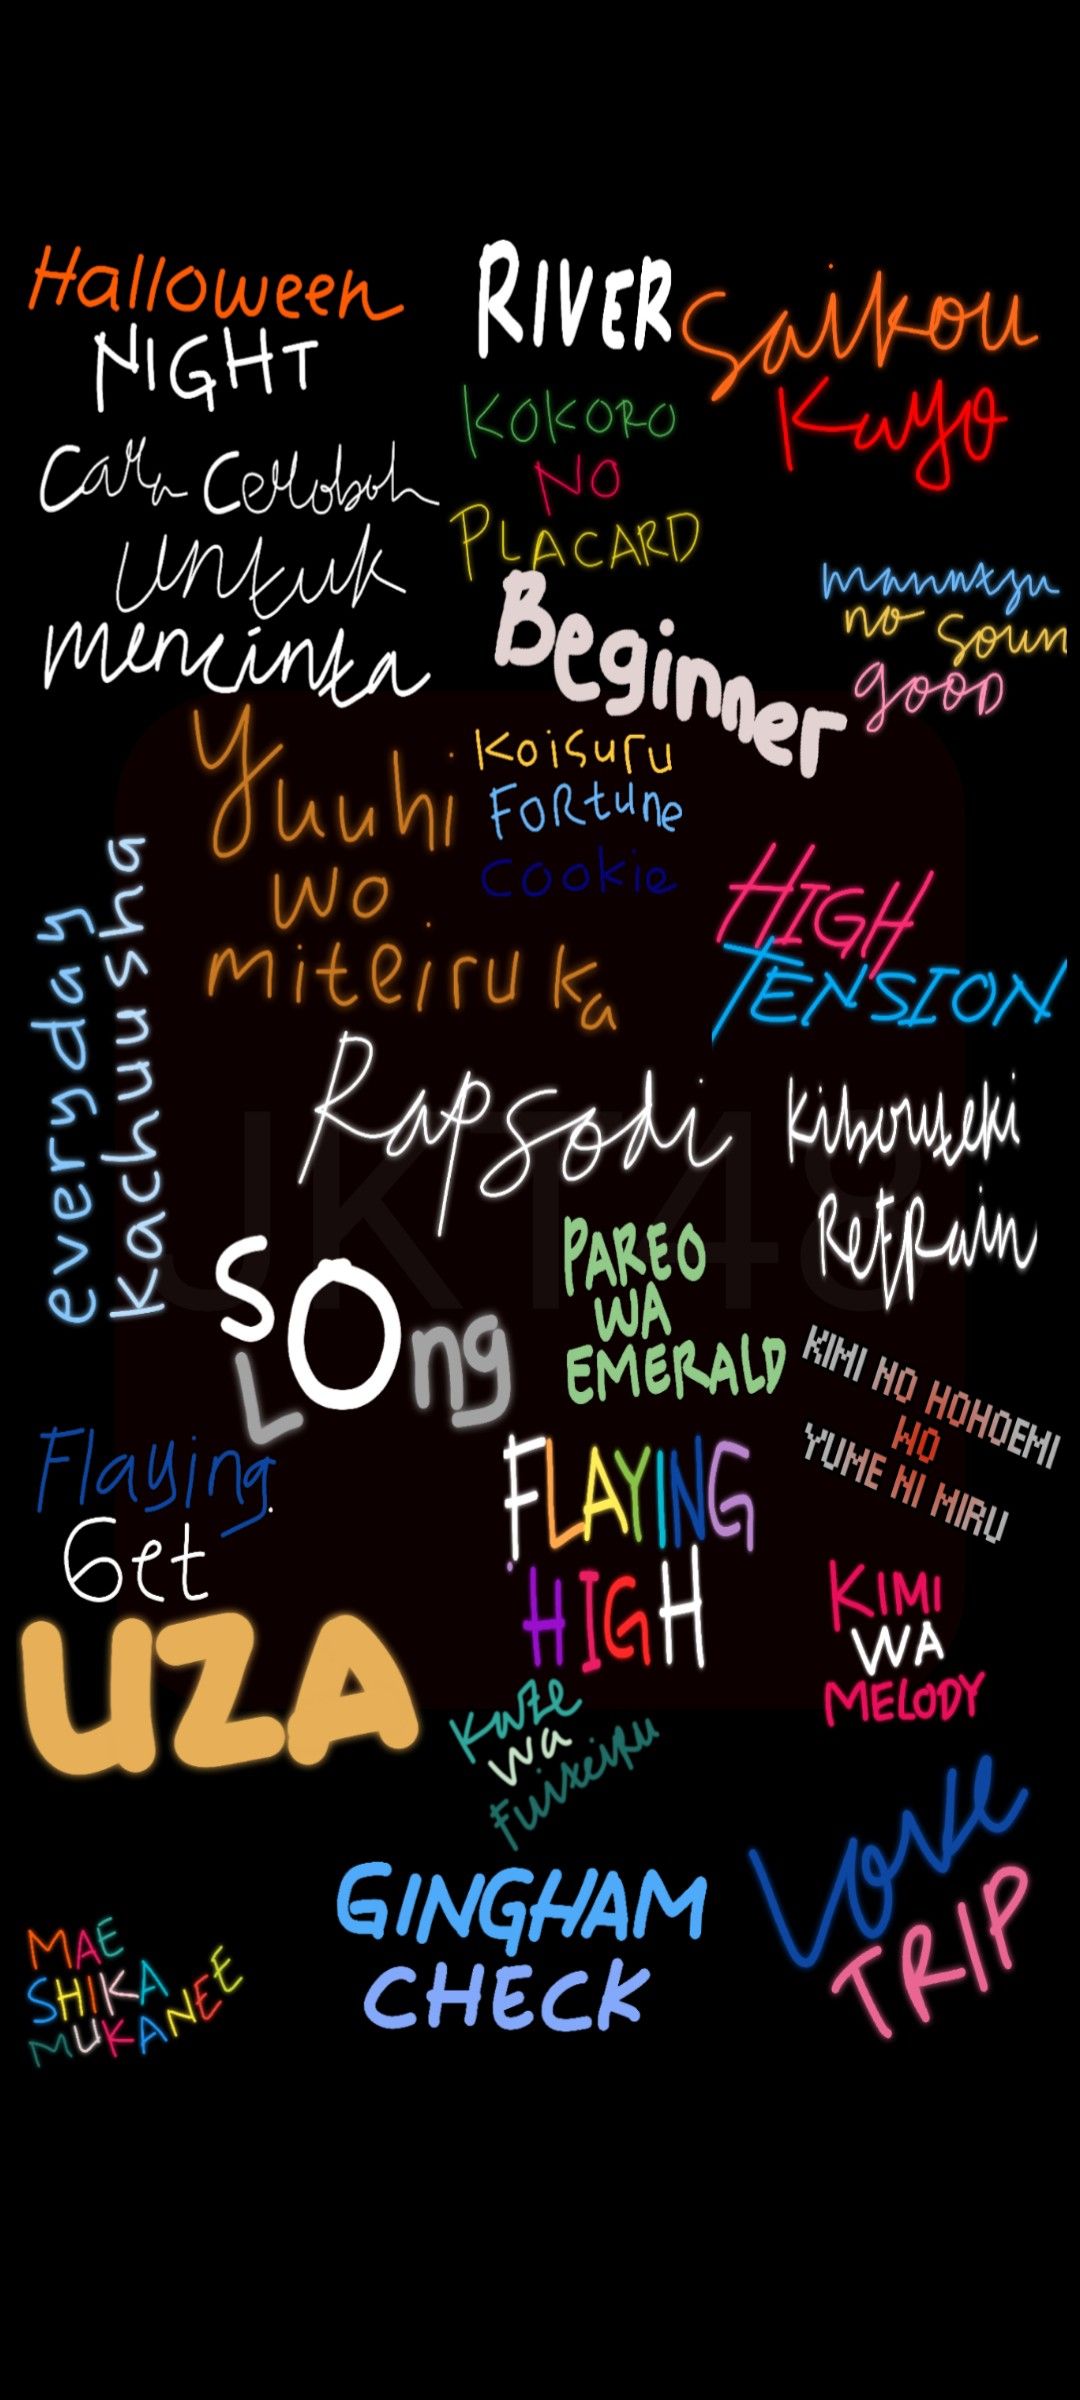 Halloween
NIGHT
RIVER
Saikou
Kayo
KOKORO
NO
PLACARD
Cara Ceroboh
untuk
mencinta
Beginner
manatsu
no Soun
good
Yuuhi
wo
miteiru ka
Koisuru
Fortune
Cookie
everyday
kachuusha
HIGH
TENSION
Rapsodi
Kibouteki
Refrain
JKT48
SO
Long
PAREO
WA
EMERALD
KIMI NO HOHOEMI
WO
YUME NI MIRU
Flaying
Get
FLAYING
HIGH
UZA
KIMI
WA
MELODY
Kaze
wa
Fuiteiru
LOVE
TRIP
GINGHAM
CHECK
MAE
SHIKA
MUKANEE